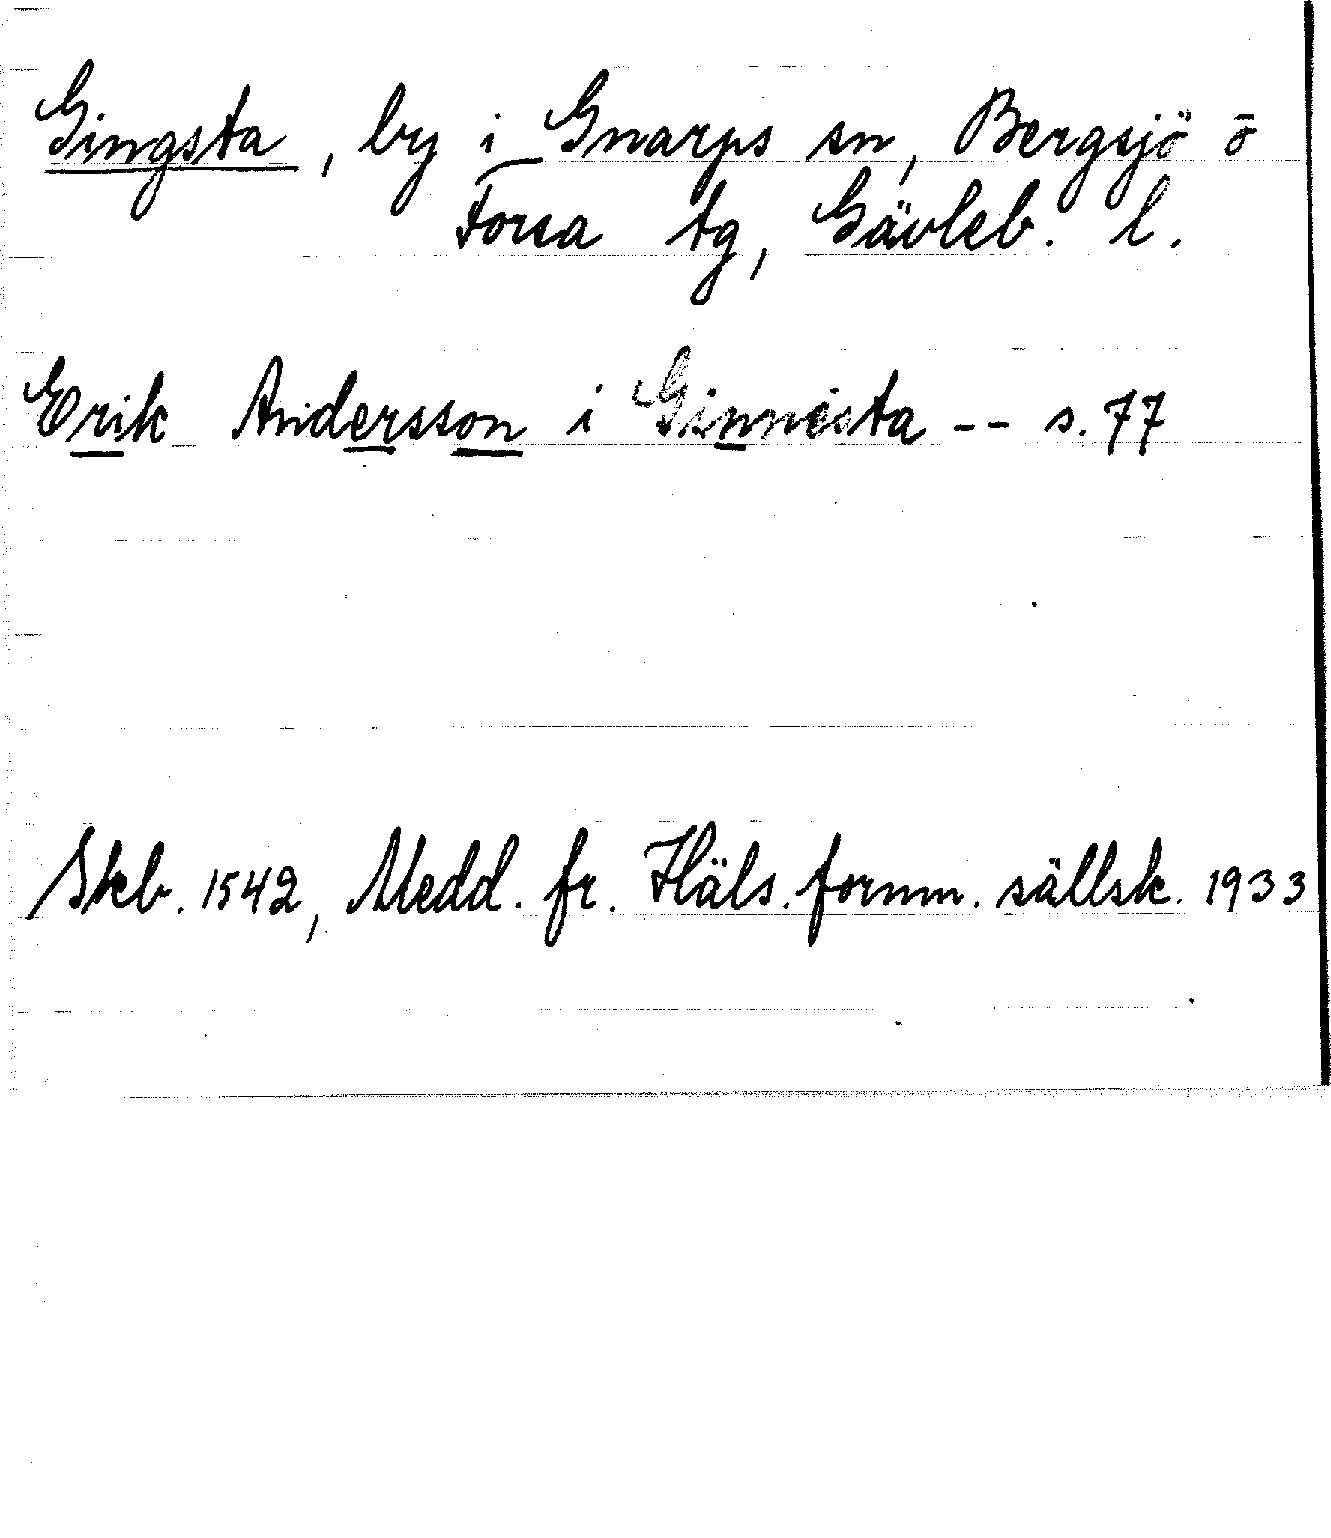 Gingsta, by i Gnarps sn, Bergsjö o
Forsa tg, Gävleb. l.
Erik Andersson i Ginnesta -- s. 77
Skb. 1542, Medd. fr. Häls. fornm. sällsk. 1933